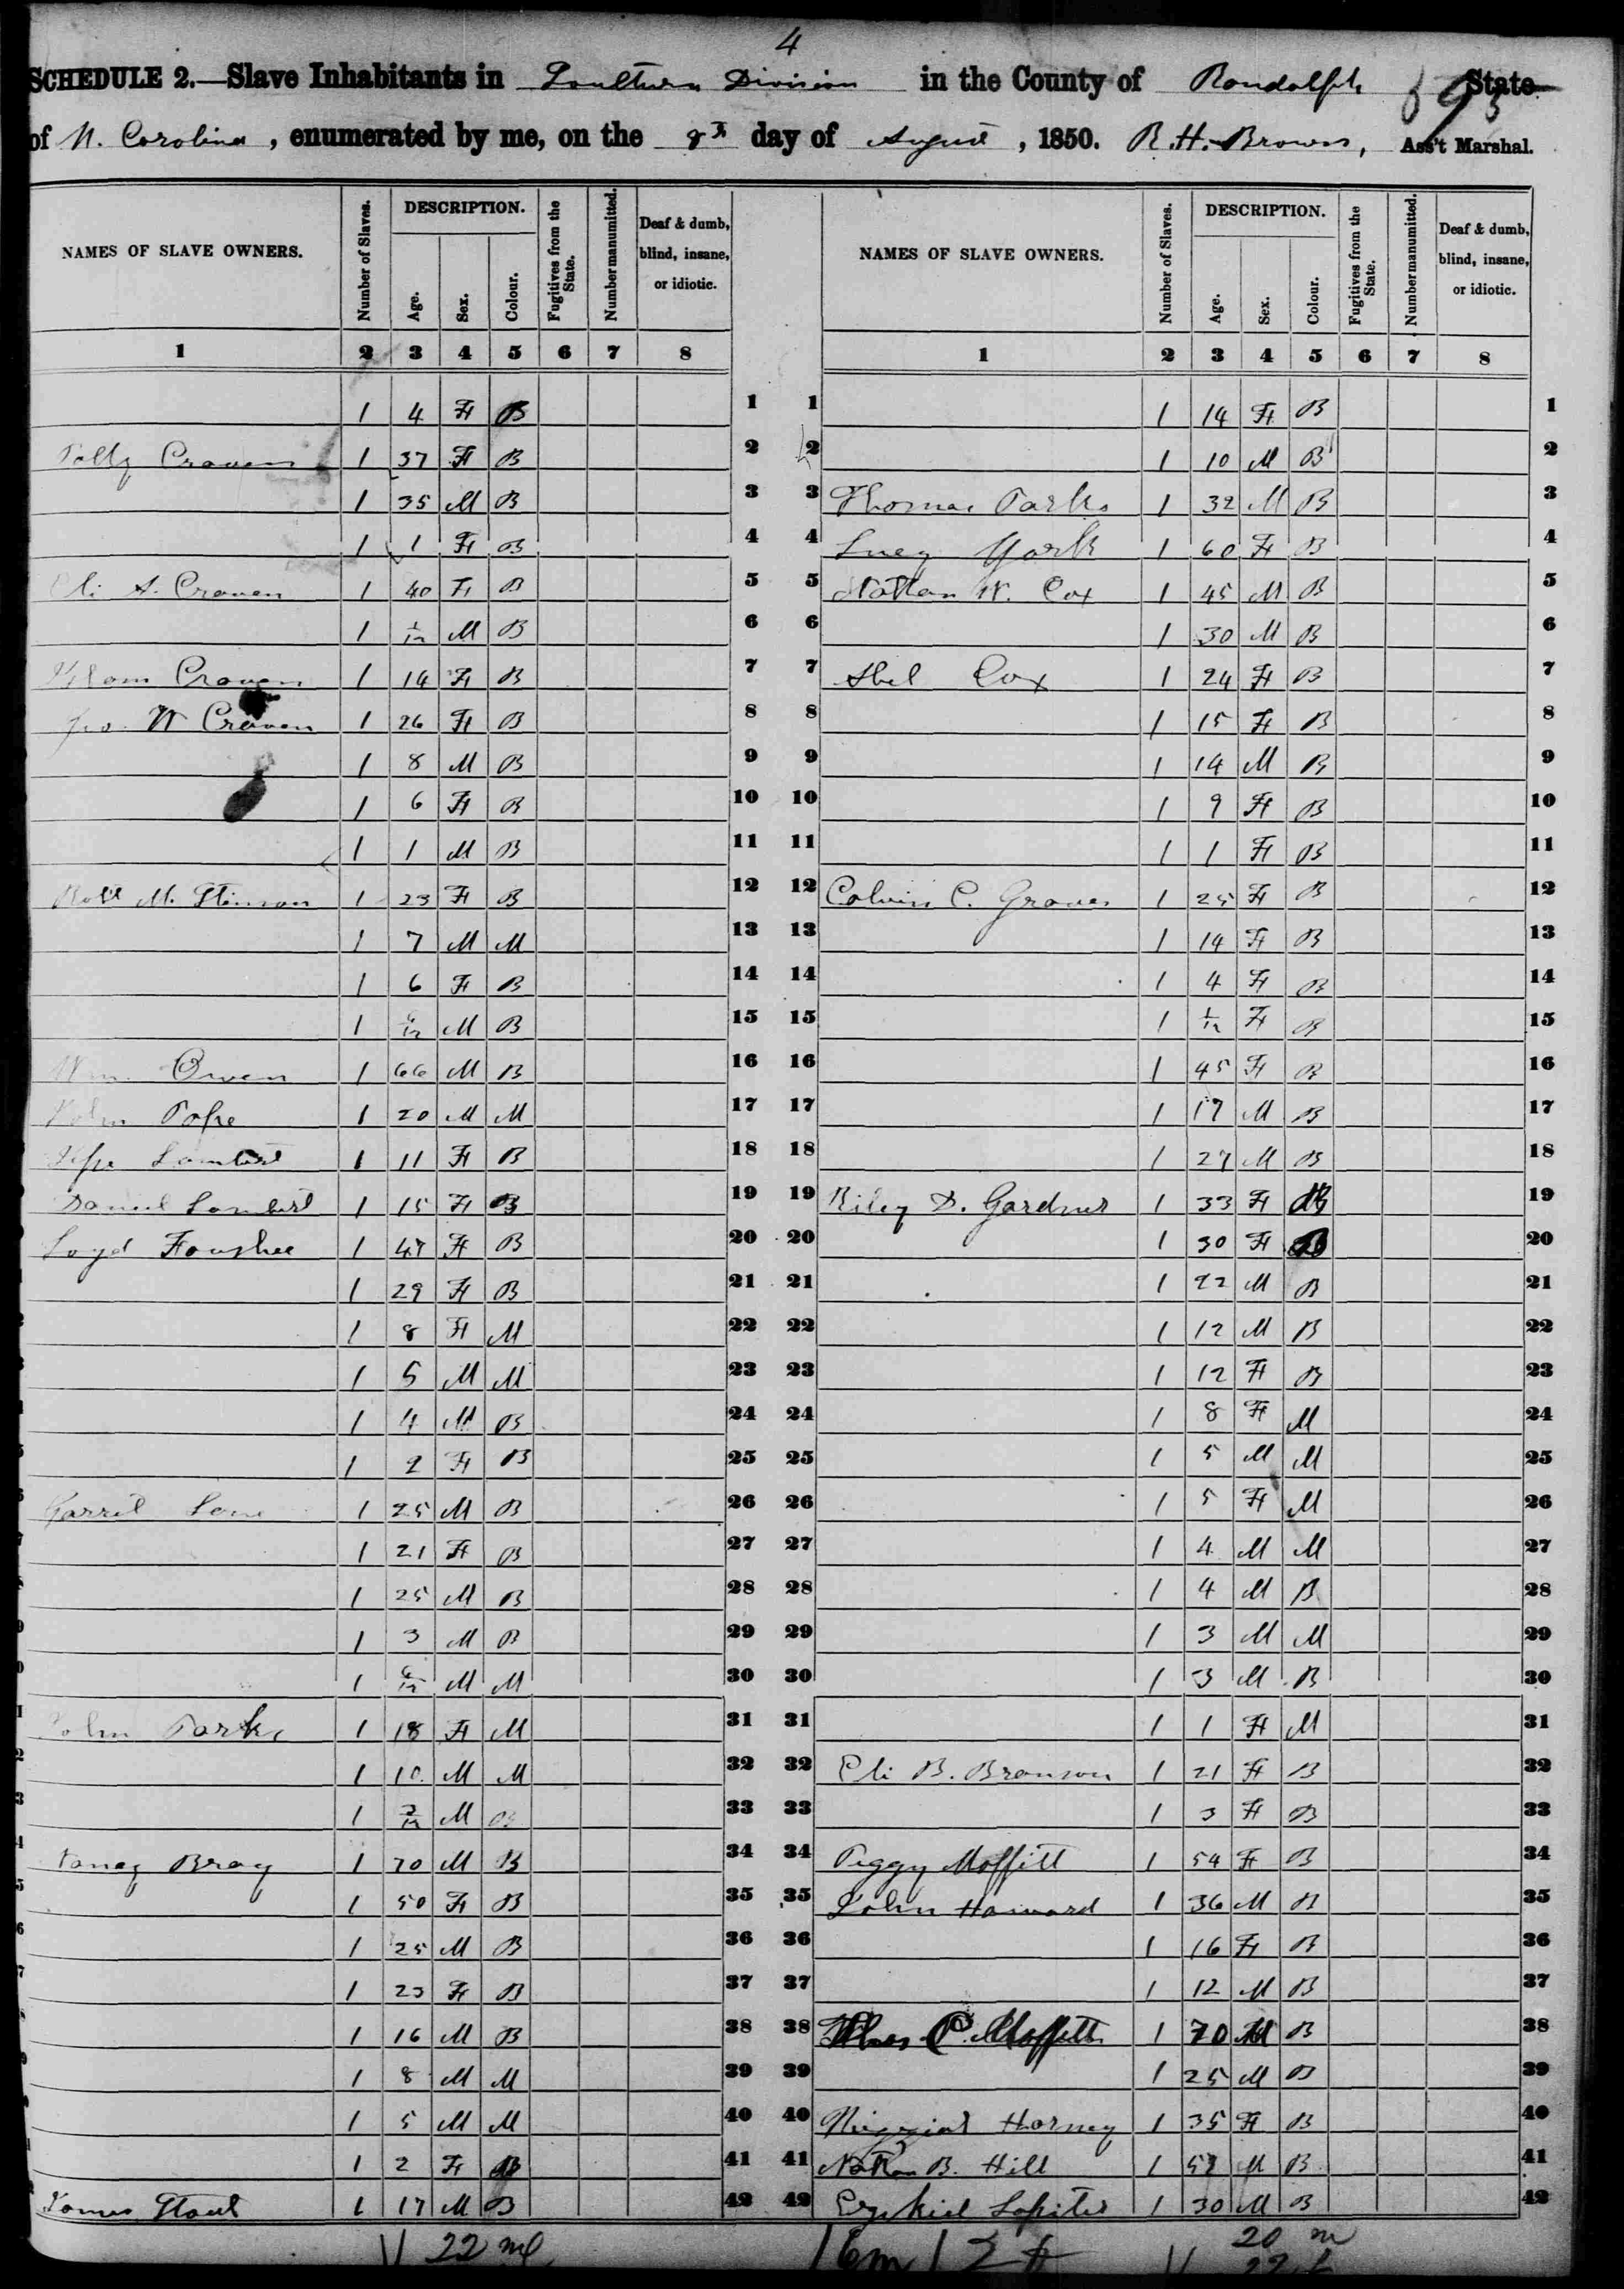 4
SCHEDULE 2.—Slave Inhabitants in Southern Division in the County of Randolph State
593
of N. Carolina, enumerated by me, on the 8th day of August, 1850. R. H. Brown, Ass't Marshal.
NAMES OF SLAVE OWNERS. Number of Slaves. DESCRIPTION. Age. Sex. Colour. Fugitives from the State. Number manumitted. Deaf & dumb, blind, insane, or idiotic.
NAMES OF SLAVE OWNERS. Number of Slaves. DESCRIPTION. Age. Sex. Colour. Fugitives from the State. Number manumitted. Deaf & dumb, blind, insane, or idiotic.
1 2 3 4 5 6 7 8 1 2 3 4 5 6 7 8
1 4 F B 1 1 1 14 F B 1
Craven 1 37 F B 2 2 1 10 M B 2
1 35 M B 3 3 Thomas Parks 1 32 M B 3
1 1 F B 4 4 Lucy York 1 60 F B 4
Eli S. Craven 1 40 F B 5 5 Nathan W. Cox 1 45 M B 5
1 1/12 M B 6 6 1 30 M B 6
Craven 1 14 F B 7 7 Abel Cox 1 24 F B 7
W Craven 1 26 F B 8 8 1 15 F B 8
1 8 M B 9 9 1 14 M B 9
1 6 F B 10 10 1 9 F B 10
1 1 M B 11 11 1 1 F B 11
Robt M. Stinson 1 23 F B 12 12 Calvin C. Graves 1 25 F B 12
1 7 M M 13 13 1 14 F B 13
1 6 F B 14 14 1 4 F B 14
1 6/12 M B 15 15 1 1/12 F B 15
Wm. Owen 1 66 M B 16 16 1 45 F B 16
John Pope 1 20 M M 17 17 1 17 M B 17
Lambert 1 11 F B 18 18 1 27 M B 18
Daniel Lambert 1 15 F B 19 19 Riley D. Gardner 1 33 F 19
Loyd Foushee 1 47 F B 20 20 1 30 F B 20
1 29 F B 21 21 1 22 M B 21
1 8 F M 22 22 1 12 M B 22
1 5 M M 23 23 1 12 F B 23
1 4 M B 24 24 1 8 F M 24
1 2 F B 25 25 1 5 M M 25
Garret Lane 1 25 M B 26 26 1 5 F M 26
1 21 F B 27 27 1 4 M M 27
1 25 M B 28 28 1 4 M B 28
1 3 M B 29 29 1 3 M M 29
1 6/12 M M 30 30 1 3 M B 30
John Parks 1 18 F M 31 31 1 1 F M 31
1 10 M M 32 32 Eli B. Branson 1 21 F B 32
1 M B 33 33 1 3 F B 33
Nancy Bray 1 70 M B 34 34 Peggy Moffitt 1 54 F B 34
1 50 F B 35 35 John Howard 1 36 M B 35
1 25 M B 36 36 1 16 F B 36
1 23 F B 37 37 1 12 M B 37
1 16 M B 38 38 C. Moffitt 1 70 M B 38
1 8 M M 39 39 1 25 M B 39
1 5 M M 40 40 Horney 1 35 F B 40
1 2 F B 41 41 Nathan B. Hill 1 M B 41
James Stout 1 17 M B 42 42 Ezekiel 1 30 M B 42
22 16 m 20 m
22 f